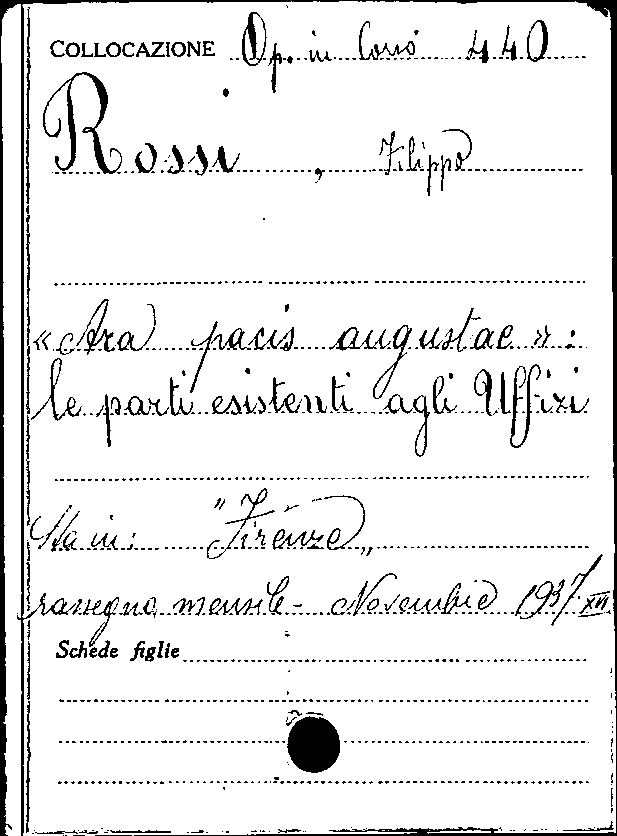 COLLOCAZIONE Op. in Corso 440
Rossi, Filippo
«Ara pacis augustae»:
le parti esistenti agli Uffizi
Sta in: "Firenze„
rassegna mensile - Novembre 1937. XVI
Schede figlie